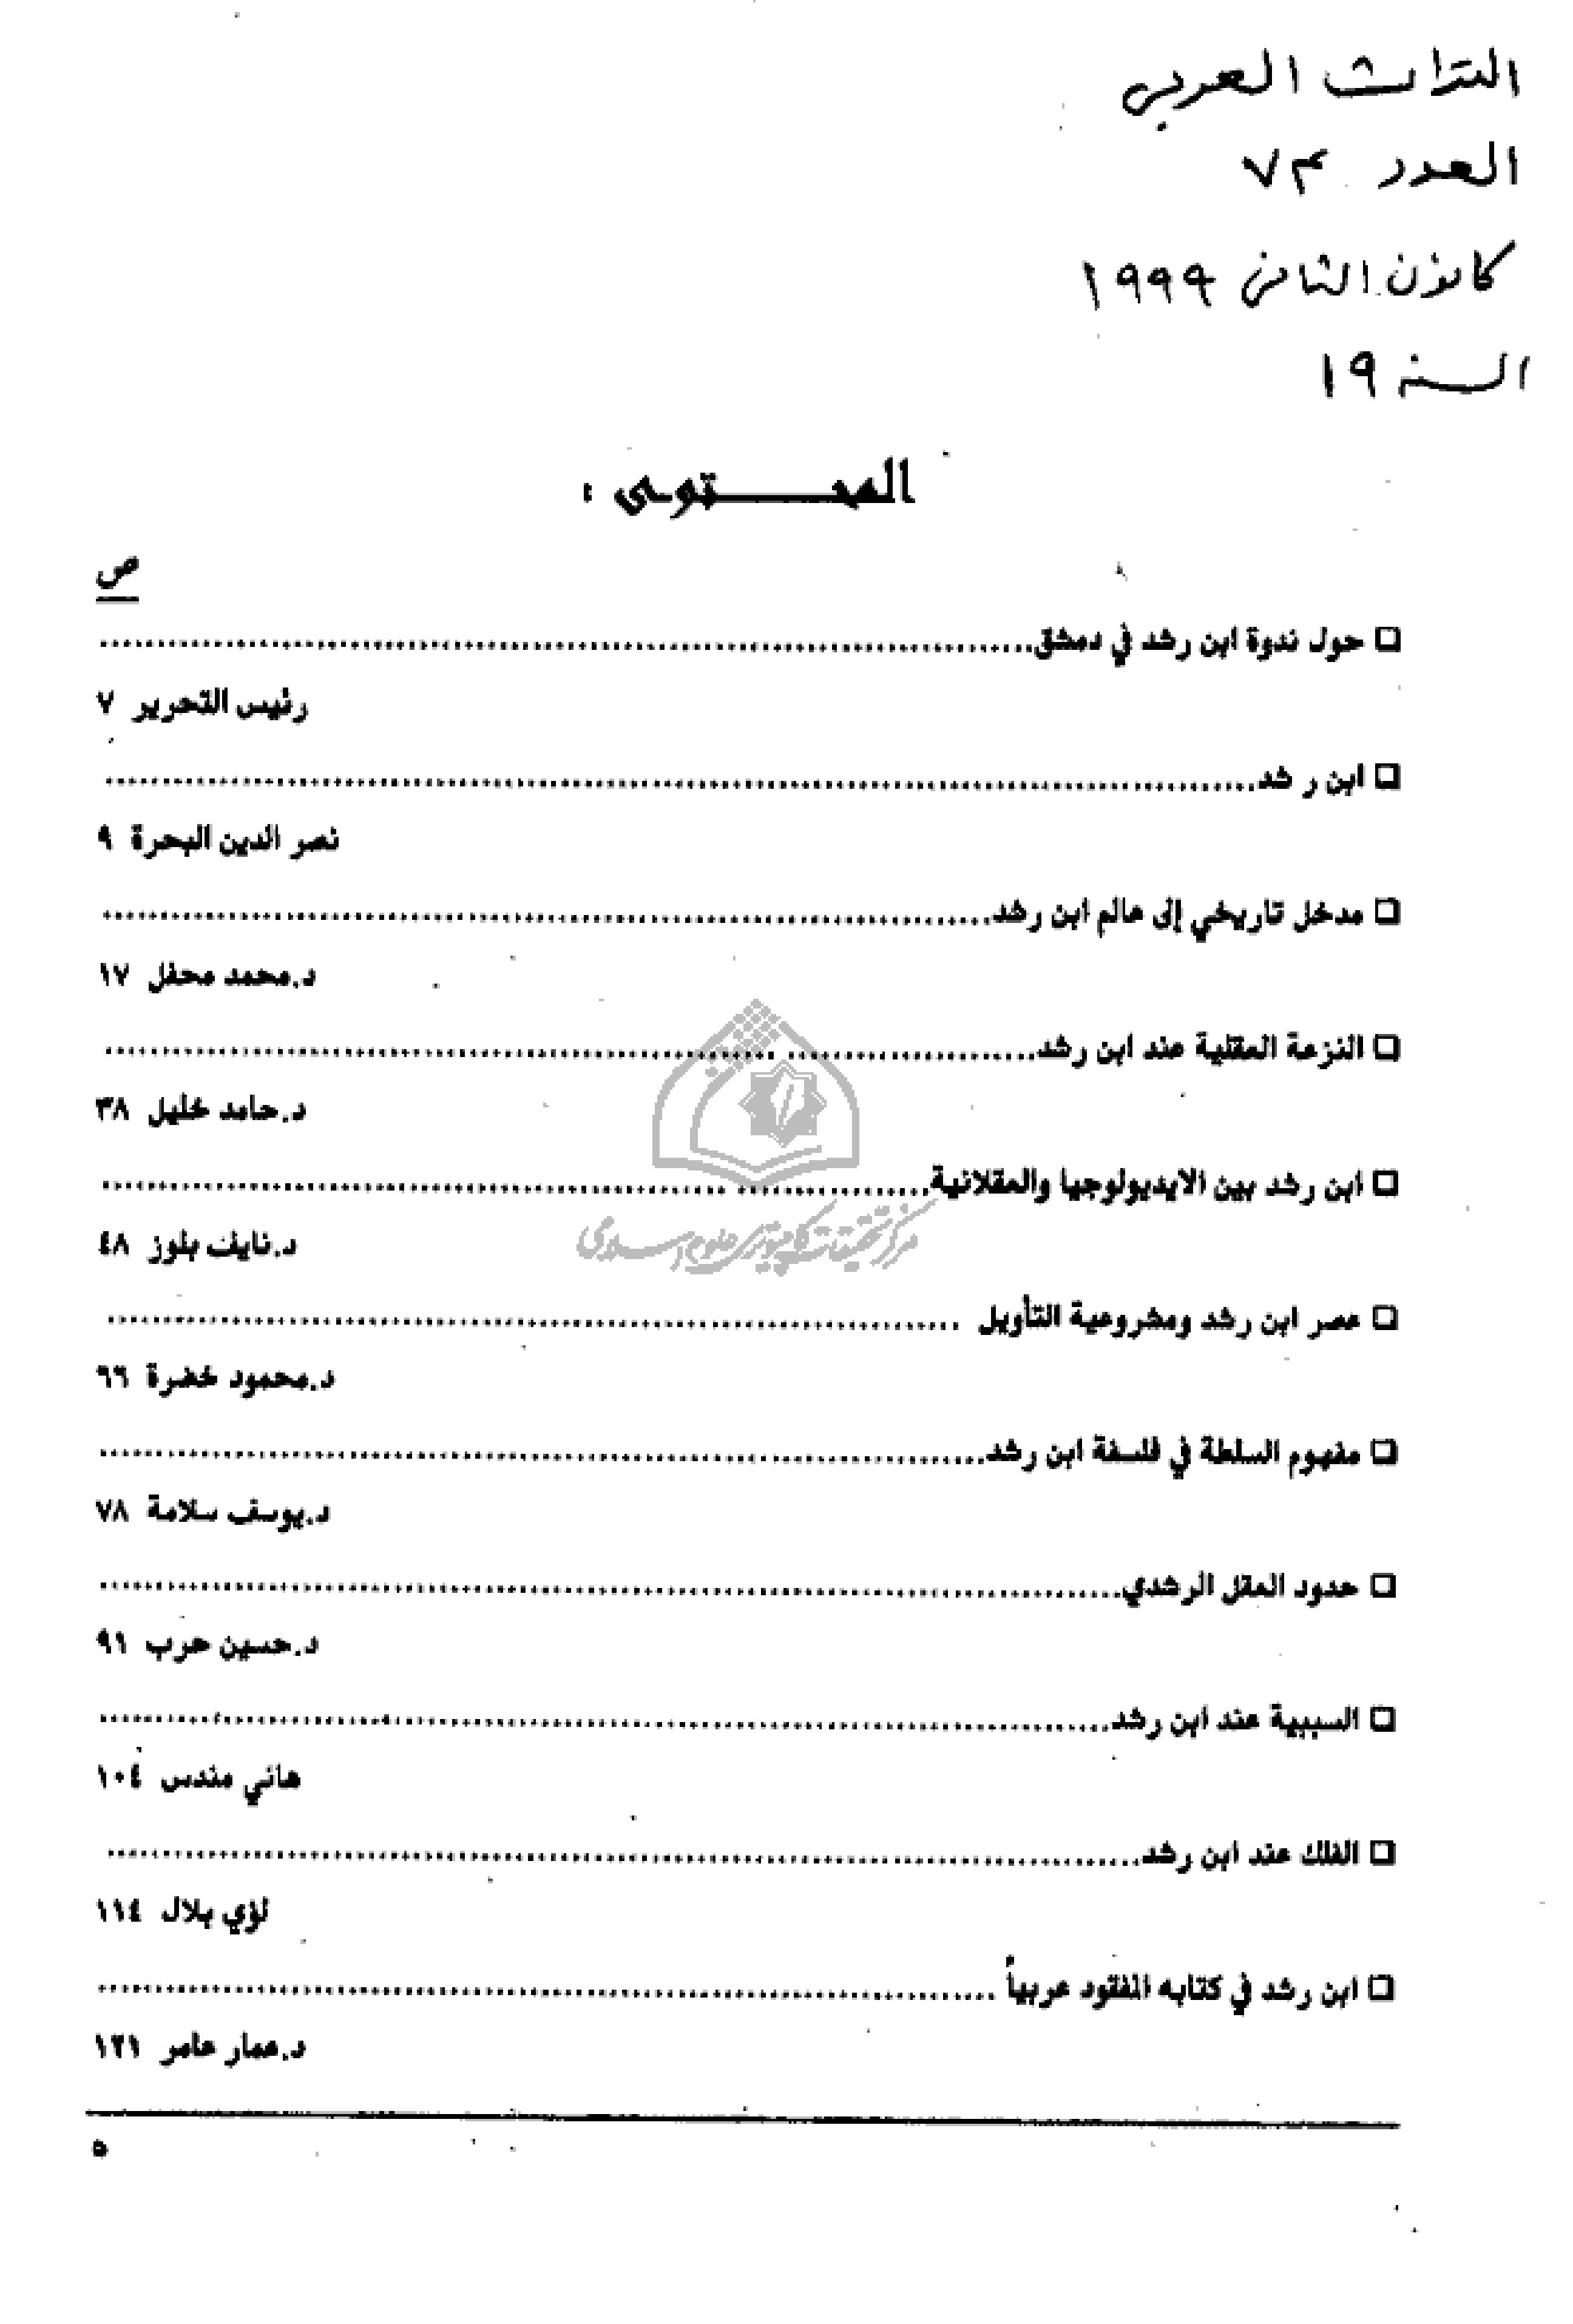 التراث العربي
العدد ٧٤
كانون الثاني ١٩٩٩
السنة ١٩
المحـــتوى :
ص
❑ حول ندوة ابن رشد في دمشق..........................................................
رئيس التحرير ٧
❑ ابن ر شد..........................................................
نصر الدين البحرة ٩
❑ مدخل تاريخي إلى عالم ابن رشد..........................................................
د.محمد محفل ١٧
❑ النزعة العقلية عند ابن رشد..........................................................
د.حامد خليل ٣٨
❑ ابن رشد بين الايديولوجيا والعقلانية..........................................................
د.نايف بلوز ٤٨
مركز تحقیقات کامپیوتری علوم اسلامی
❑ عصر ابن رشد ومشروعية التأويل ..........................................................
د.محمود خضرة ٦٦
❑ مفهوم السلطة في فلسفة ابن رشد..........................................................
د.يوسف سلامة ٧٨
❑ حدود العقل الرشدي..........................................................
د.حسين حرب ٩١
❑ السببية عند ابن رشد..........................................................
هاني مندس ١٠٤
❑ الفلك عند ابن رشد..........................................................
لؤي بلال ١١٤
❑ ابن رشد في كتابه المفقود عربياً ..........................................................
د.عمار عامر ١٢١
٥